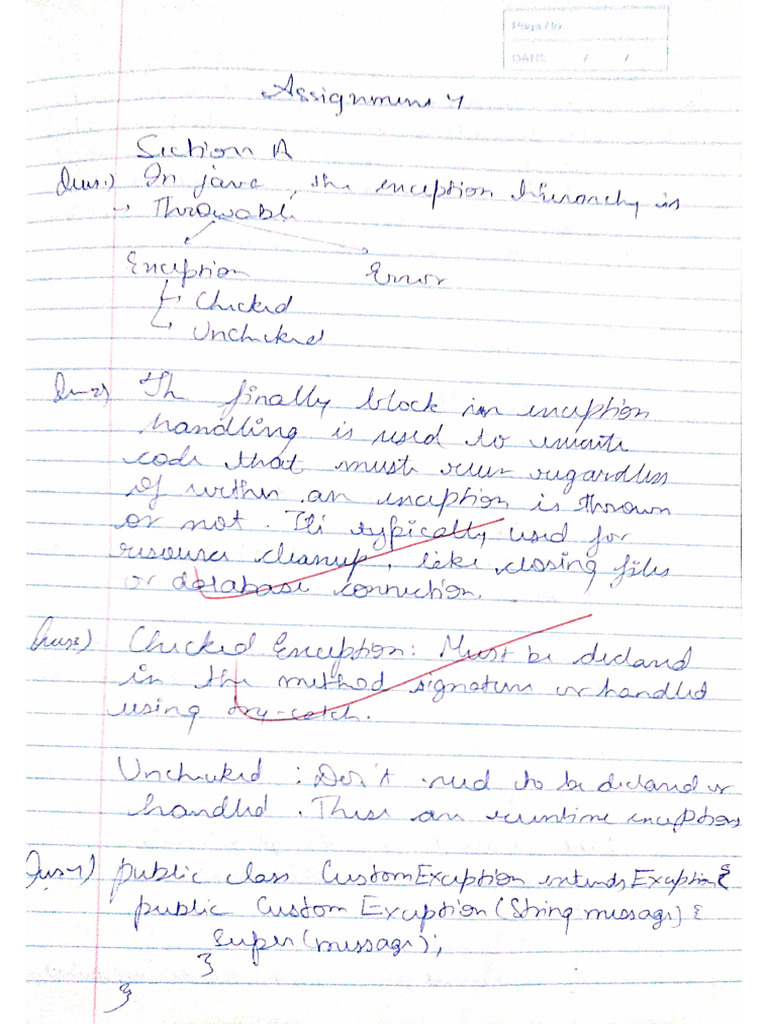 Page No.
DATE: / /
Assignment 4
Section A
Ques1) In java, the exception hierarchy is
→ Throwable
Exception Error
→ Checked
→ Unchecked
Ques2) Th finally block in exception
handling is used to execute
code that must run regardless
of wether an exception is thrown
or not. It's typically used for
resource cleanup, like closing files
or database connection.
Ques3) Checked Exception: Must be declared
in the method signature or handled
using try-catch.
Unchecked : Don't need to be declared or
handled. These are runtime exceptions
Ques4) public class CustomException extends Exception{
public CustomException(String message) {
super(message);
}
}